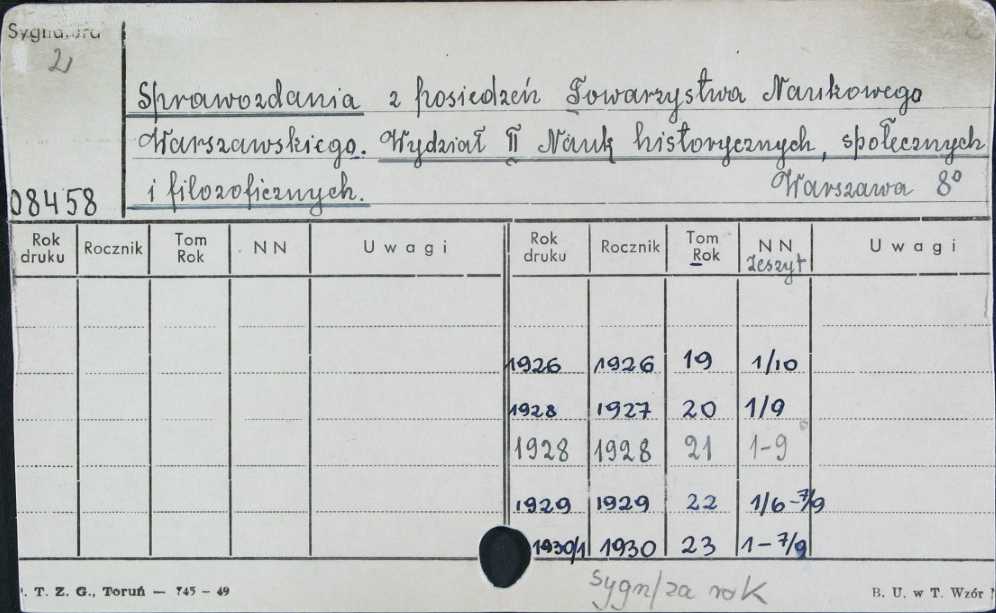 Sygnatura
2
Sprawozdania z posiedzeń Towarzystwa Naukowego
Warszawskiego. Wydział II Nauk historycznych, społecznych
i filozoficznych. Warszawa 8°
08458
Rok druku Rocznik Tom Rok N N Uwagi Rok druku Rocznik Tom Rok N N Zeszyt Uwagi
1926 1926 19 1/10
1928 1927 20 1/9
1928 1928 21 1-9
1929 1929 22 1/6-7/9
1930/1 1930 23 1-7/9
sygn/za rok
. T. Z. G., Toruń — 745 - 49 B. U. w T. Wzór